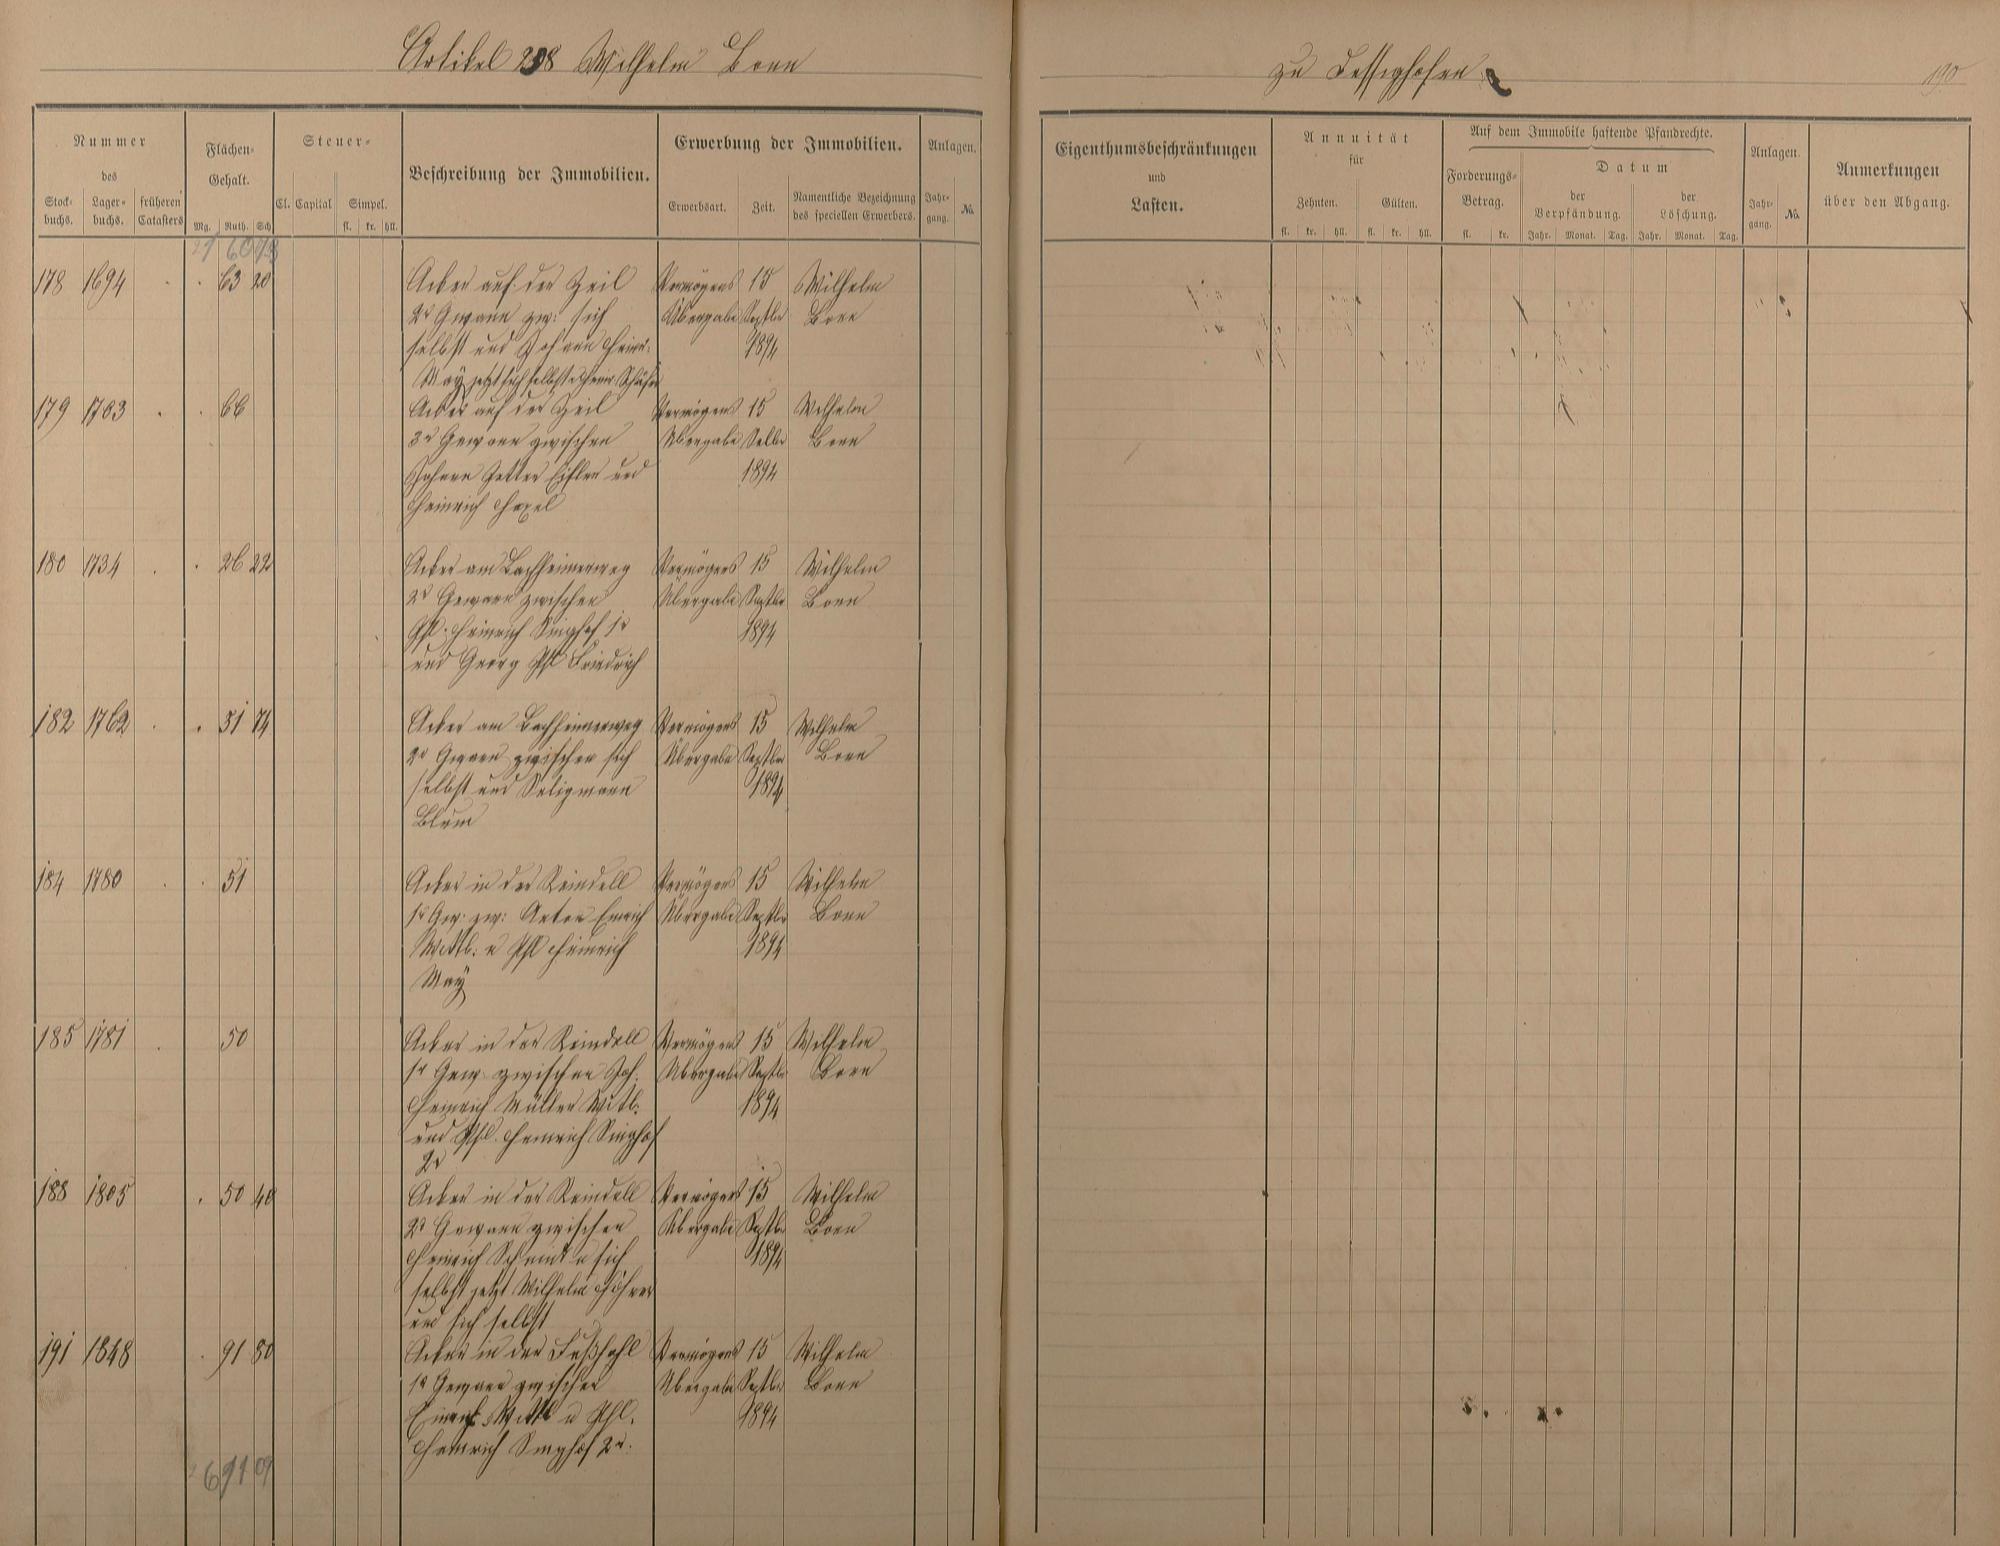 Artikel 238 Wilhelm Born
zu
190
Nummer
des
Stock-
buchs.
Lager-
buchs.
früheren
Catasters
Flächen-
Gehalt.
Mg. Ruth. Sch
Steuer-
Cl. Capital
Simpel.
fl. kr. hll.
Beschreibung der Immobilien.
Erwerbung der Immobilien.
Erwerbsart. Zeit.
Namentliche Bezeichnung
des speciellen Erwerbers.
Anlagen.
Jahr-
gang. No.
Eigenthumsbeschränkungen
und
Lasten.
Annuität
für
Zehnten. Gülten.
fl. kr. hll. fl. kr. hll.
Auf dem Immobile haftende Pfandrechte.
Forderungs-
Betrag.
fl. kr.
Datum
der
Verpfändung.
Jahr. Monat. Tag.
der
Löschung.
Jahr. Monat. Tag.
Anlagen.
Jahr-
gang. No.
Anmerkungen
über den Abgang.
178 1694 63 20 Acker auf der Zeil Vermögens 15 Wilhelm
2r Gewann zw: sich Übergabe Septbr Born
selbst und Johann Heinr: 1894
May jetzt sich selbst u Heinr. Schäfer
179 1703 66 Acker auf der Zeil Vermögens 15 Wilhelm
3r Gewann zwischen Übergabe Born
Johann und 1894
Heinrich
180 1734 26 22 Acker am Vermögens 15 Wilhelm
2r Gewann zwischen Übergabe Septbr Born
Phl. Heinrich Singhof 1r 1894
und Georg Phl Friedrich
182 1762 51 74 Acker am Vermögens 15 Wilhelm
2r Gewann zwischen sich Übergabe Septbr Born
selbst und Seligmann 1894
Blum
184 1780 51 Acker in der Reindell Vermögens 15 Wilhelm
1r Gew: zw: Anton Emrich Übergabe Septbr Born
Wittb: u Phl Heinrich 1894
May
185 1781 50 Acker in der Reindell Vermögens 15 Wilhelm
1r Gew zwischen Joh. Übergabe Septbr Born
Heinrich Müller Wittb: 1894
und Phl. Heinrich Singhof
2r
188 1805 50 40 Acker in der Reindell Vermögens 15 Wilhelm
2r Gewann zwischen Übergabe Septbr Born
Heinrich Schmidt u sich 1894
selbst jetzt Wilhelm
und sich selbst
191 1848 91 80 Acker in der Vermögens 15 Wilhelm
1r Gewann zwischen Übergabe Septbr Born
Emrich Wittb u Phl. 1894
Heinrich Singhof 2r.